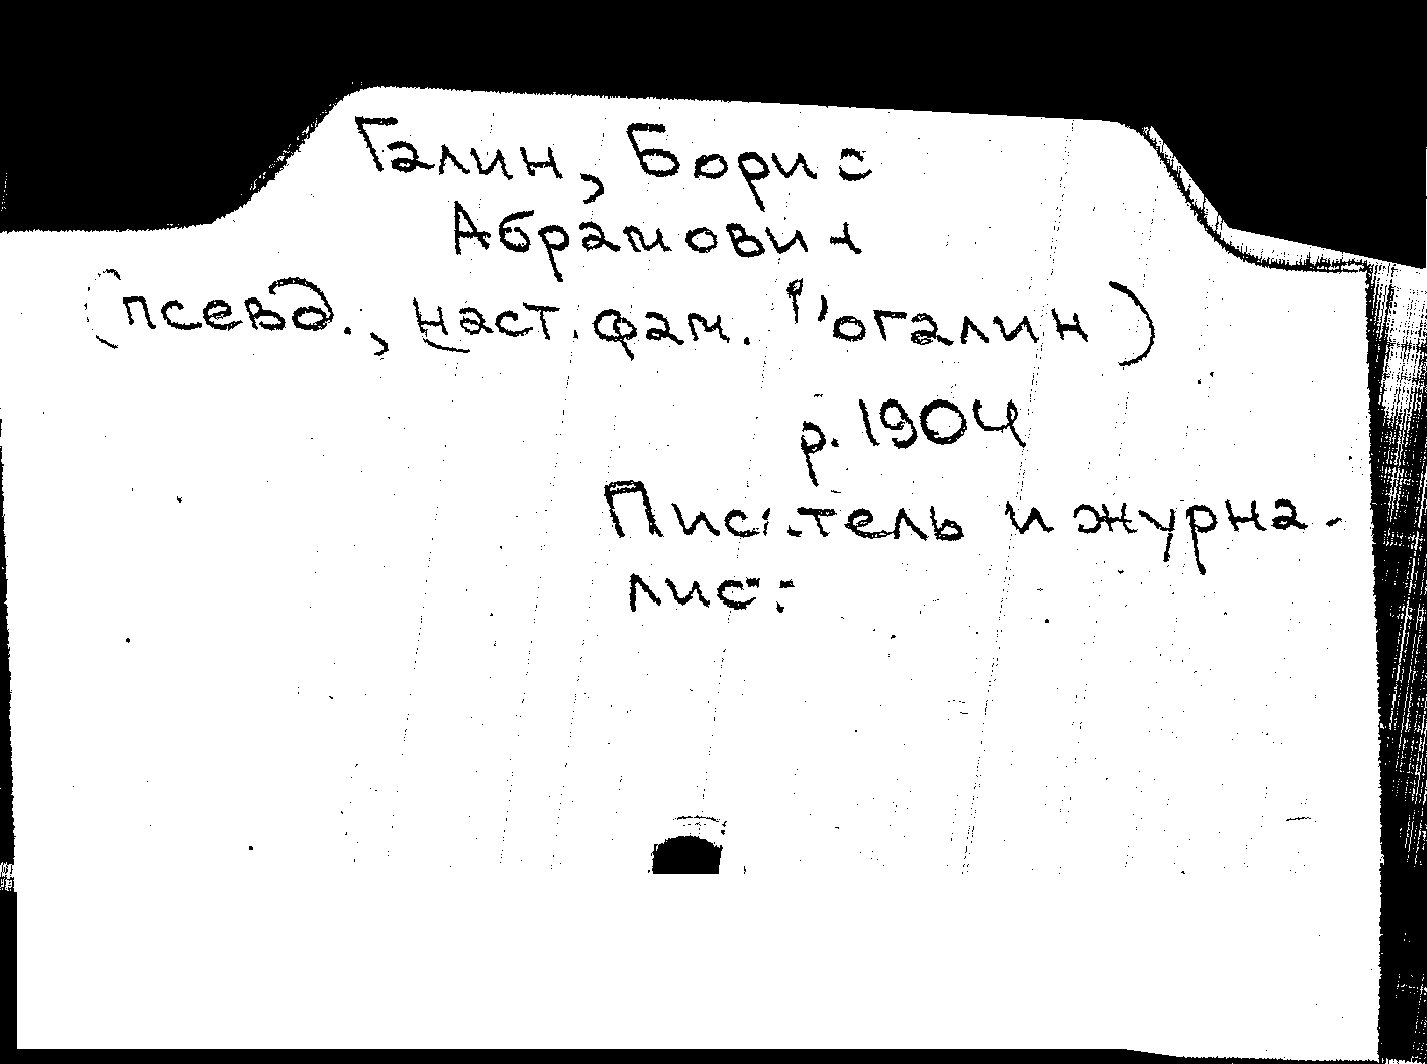 Галин, Борис
Абрамович
(псевд., наст. фам. Рогалин)
р. 1904
Писатель и журна-
лист